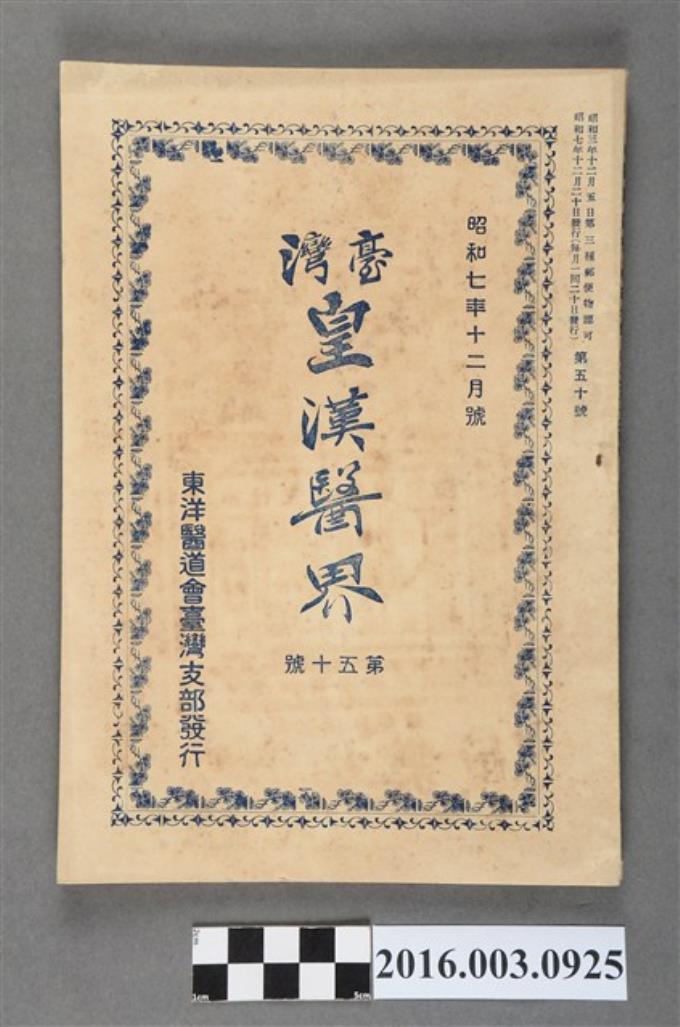 昭和三年十二月五日第三種郵便物認可
昭和七年十二月二十日發行(每月一回二十日發行) 第五十號
昭和七年十二月號
臺灣
皇漢醫界
第五十號
東洋醫道會臺灣支部發行
1cm
5cm
2016.003.0925